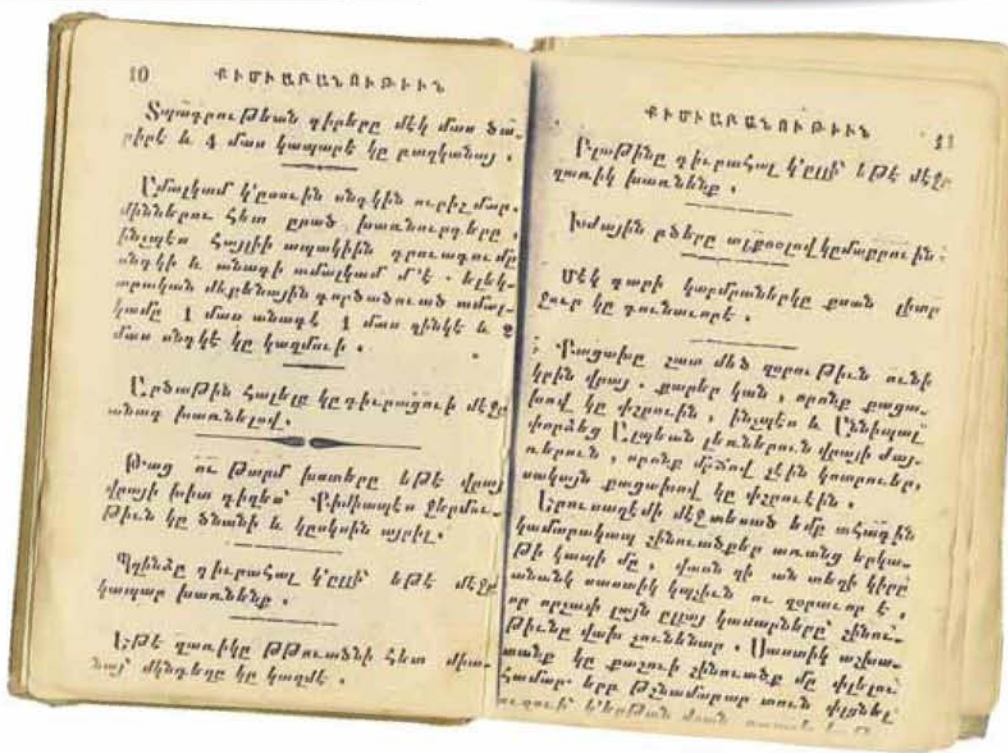 10 ՔԻՄԻԱԲԱՆՈՒԹԻՒՆ
Տպագրութեան գիրերը մէկ մաս ծա-
րիրէ և 4 մաս կապարէ կը բաղկանայ .
Ամալկամ կ'ըսուին սնդկին ուրիշ մար.
միններու հետ ըրած խառնուրդները ,
ինչպէս հայլիի ապակիին զրուագումը
սնդկի և անագի ամալկամ մ'է . ելեկ-
տրական մեքենային գործածուած ամալ-
կամը 1 մաս անագէ 1 մաս զինկէ և 2
մաս սնդկէ կը կազմուի .
Արծաթին հալելը կը դիւրացուի մէջը
անագ խառնելով .
Թաց ու թարմ խոտերը եթէ վրայ
վրայի խիտ դիզես՝ Քիմիապէս ջերմու-
թիւն կը ծնանի և կրակսին այրիլ .
Պղինձը դիւրահալ կ'ըլլի՝ եթէ մէջը
կապար խառնենք .
Եթէ զառիկը թթուածնի հետ միա-
նայ՝ մկնդեղը կը կազմէ .
ՔԻՄԻԱԲԱՆՈՒԹԻՒՆ 11
Պլաթինը դիւրահալ կ'ըլլի՝ եթէ մէջը
զառիկ խառնենք .
Խմային բծերը ալքօօլով կըմաքրուին .
Մէկ գարի կարմրաներկը քսան լիտր
ջուր կը գունաւորէ .
Քացախը շատ մեծ զօրութիւն ունի
կրին վրայ . քարեր կան , որոնք քացա-
խով կը փշրուին , ինչպէս և Աննիպալ
փորձեց Ալպեան լեռներուն վրայի ժայ-
ռերուն , որոնք մրճով չէին կոտրուեր,
սակայն քացախով կը փշրուէին .
Երուսաղէմի մէջ տեսած եմք ահագին
կամարակապ շինուածքներ առանց երկա-
թի կապի մը , վասն զի ան տեղի կիրը
անանկ սաստիկ կպչիւն ու զօրաւոր է ,
որ որչափ լայն ըլլայ կամարները՝ շինու-
թիւնը վախ չունենար . Սաստիկ աշխա-
տանք կը քաշուի շինուածք մը փլելու
համար՝ երբ թշնամաբար տուն փլցնել